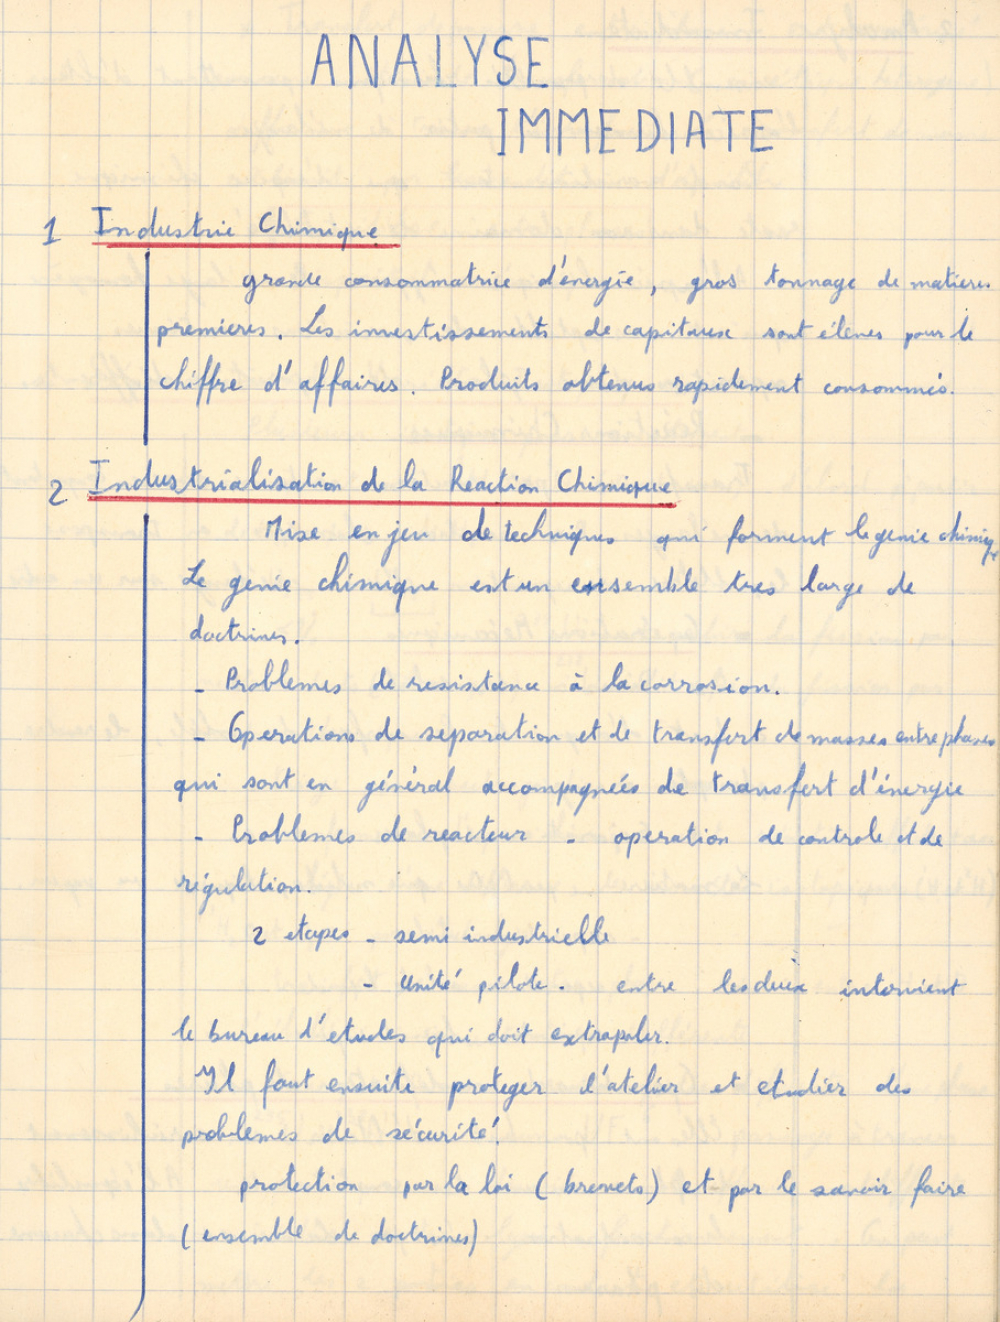 ANALYSE
IMMEDIATE
1 Industrie Chimique
grande consommatrice d'énergie, gros tonnage de matieres
premieres. Les investissements de capitaux sont élevés pour le
chiffre d'affaires. Produits obtenus rapidement consommés.
2 Industrialisation de la Reaction Chimique
Mise en jeu de techniques qui forment le genie chimiqe
Le genie chimique est un ensemble tres large de
doctrines.
- Problemes de resistance à la corrosion.
- Operations de separation et de transfert de masses entre phases
qui sont en général accompagnées de transfert d'énergie
- Problemes de reacteur - operation de controle et de
régulation.
2 etapes - semi industrielle
- unité pilote. entre les deux intervient
le bureau d'etudes qui doit extrapoler.
Il faut ensuite proteger l'atelier et etudier des
problemes de sécurité.
protection par la loi (brevets) et par le savoir faire
(ensemble de doctrines)